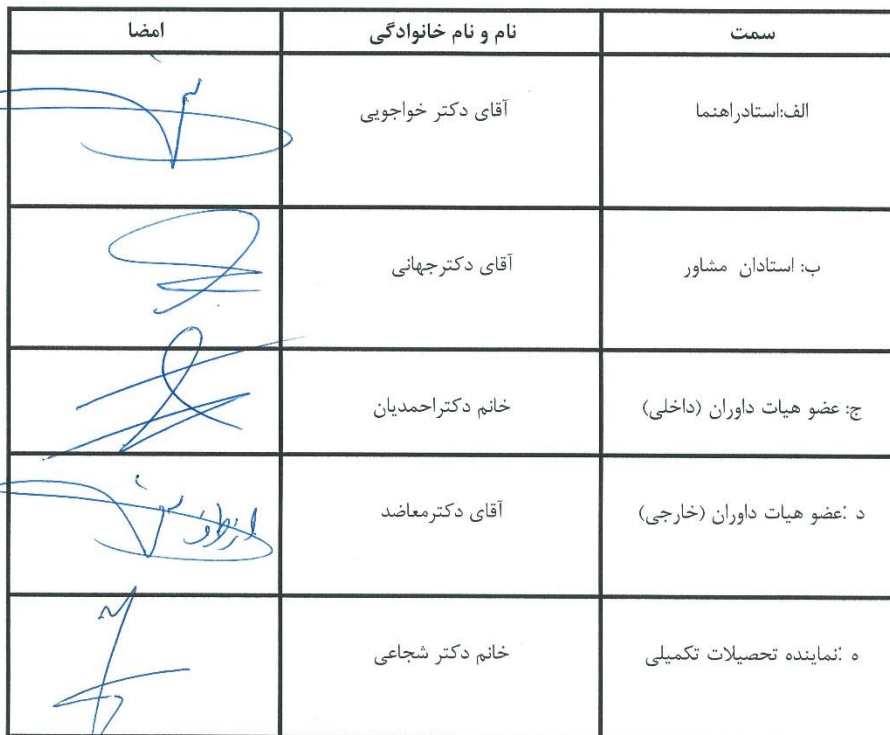 سمت نام و نام خانوادگی امضا
الف:استادراهنما آقای دکتر خواجویی
ب: استادان مشاور آقای دکترجهانی
ج: عضو هیات داوران (داخلی) خانم دکتراحمدیان
د :عضو هیات داوران (خارجی) آقای دکترمعاضد از طرف
ه :نماینده تحصیلات تکمیلی خانم دکتر شجاعی